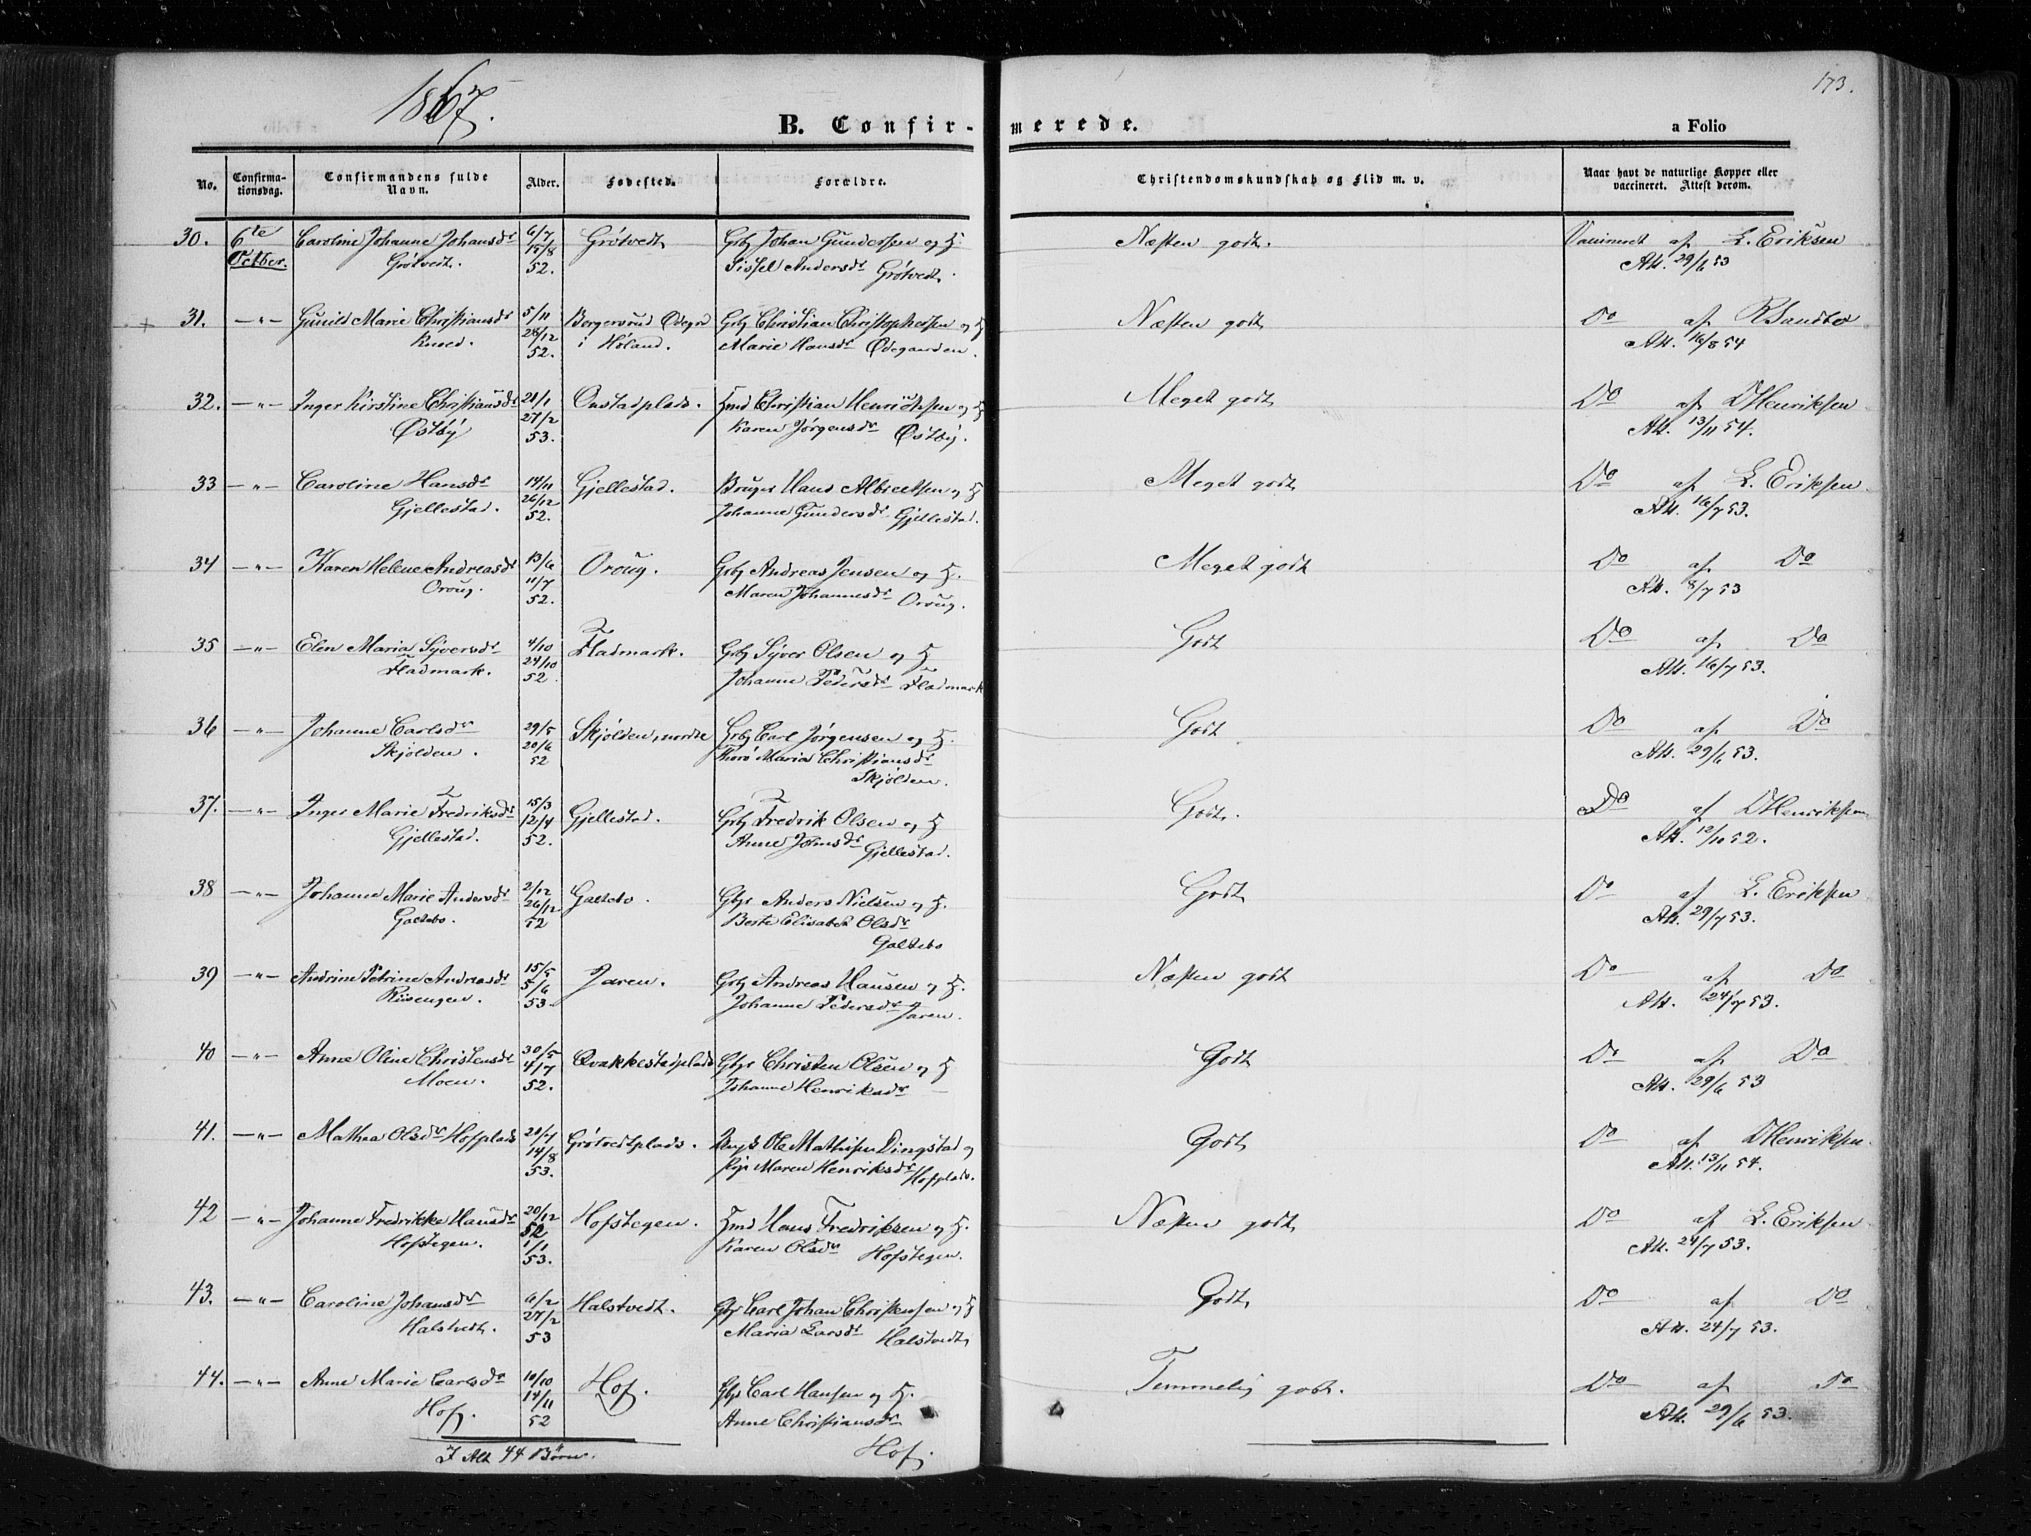 1867.
173.
B. Confir-
merede.
a Folio
No.
Confirma-
tionsdag.
Confirmandens fulde
Navn.
Alder.
Fødested.
Forældre.
Christendomskundskab og Flid m. v.
Naar havt de naturlige Kopper eller
vaccineret. Attest derom.
30. 6te Caroline Johanne Johansdr 6/7 Grôtvedt Grbr Johan Gundersen og H. Næsten godt. Vaccineret af L. Eriksen
Octber. Grôtvedt. 15/8 Sissel Andersdr Grôtvedt. Att. 29/6 53
52.
31. —"— Gunild Marie Christiansdr 5/11 Borgersrud Ødegrd Grbr Christian Christophersen og H Næsten godt Do af R Sandbo
28/12 i Høland. Marie Hansdr Ødegaarden. Att. 16/8 54
52.
32. —"— Inger Kirstine Christiansdr 21/1 Onstadplads. Hmd Christian Henriksen og H Meget godt Do af D Henriksen
Østby 27/2 Karen Jørgensdr Østby. Att. 13/11 54.
53.
33 —"— Caroline Hansdr 14/11 Gjellestad. Bruger Hans Albretsen og H Meget godt Do af L. Eriksen
Gjellestad. 26/12 Johanne Gundersdr Gjellestad. Att. 16/7 53.
52.
34 —"— Karen Helene Andreasdr 13/6 Oroug. Grbr Andreas Jensen og H. Meget godt Do af Do
Oroug. 11/7 Maren Johannesdr Oroug. Att. 8/7 53
52.
35 —"— Elen Maria Syversdr 4/10 Fladmark. Grbr Syver Olsen og H Godt Do af Do
Fladmark. 24/10 Johanne Pedersdr Fladmark Att. 16/7 53.
52.
36 —"— Johanne Carlsdr 29/5 Skjôlden, nordre Grbr Carl Jørgensen og H. Godt Do af Do
Skjôlden. 20/6 Thore Maria Christiansdr Att. 29/6 53.
52 Skjôlden.
37. —"— Inger Marie Fredriksdr 15/3 Gjellestad. Grbr Fredrik Olsen og H Godt. Do af D Henriksen
Gjellestad. 12/4 Anne Johnsdr Gjellestad. Att. 12/10 52.
52.
38 —"— Johanne Marie Andersdr 2/12 Galtebo. Gbr Anders Nielsen og H. Godt Do af L. Eriksen
Galtebo. 26/12 Berte Elisabet Olsdr Att. 29/7 53.
52 Galtebo
39 —"— Andrine Petrine Andreasdr 15/5 Jaren. Grbr Andreas Hansen og H. Næsten godt Do af Do
Riisengen. 5/6 Johanne Pedersdr Jaren. Att. 24/7 53.
53.
40 —"— Anne Oline Christensdr 30/5 Qvakkestadplads Gbr Christen Olsen og H Godt Do af Do
Moen. 4/7 Johanne Henriksdr — Att. 29/6 53
52.
41. —"— Mathea Olsdr Hofplads 20/7 Grôtvedtplads. Ungk Ole Mathisen Dingstad og Godt Do af D Henriksen
14/8 Pige Maren Henriksdr Hofplads. Att. 13/11 54.
53.
42 —"— Johanne Fredrikke Hansdr 20/12 Hofstegen. Hmd Hans Fredriksen og H. Næsten godt Do af L. Eriksen
Hofstegen. 52 Karen Olsdr Hofstegen. Att. 24/7 53.
1/1
53.
43. —"— Caroline Johansdr 6/2 Halstvedt. Gbr Carl Johan Christensen og H Godt Do af Do
Halstvedt. 27/2 Maria Larsdr Halstvedt Att. 24/7 53.
53
44. —"— Anne Marie Carlsdr 10/10 Hof. Gbr Carl Hansen og H. Temmelig godt. Do af Do
Hof. 14/11 Anne Christiansdr Att. 29/6 53.
52 Hof.
I Alt 44 Børn.